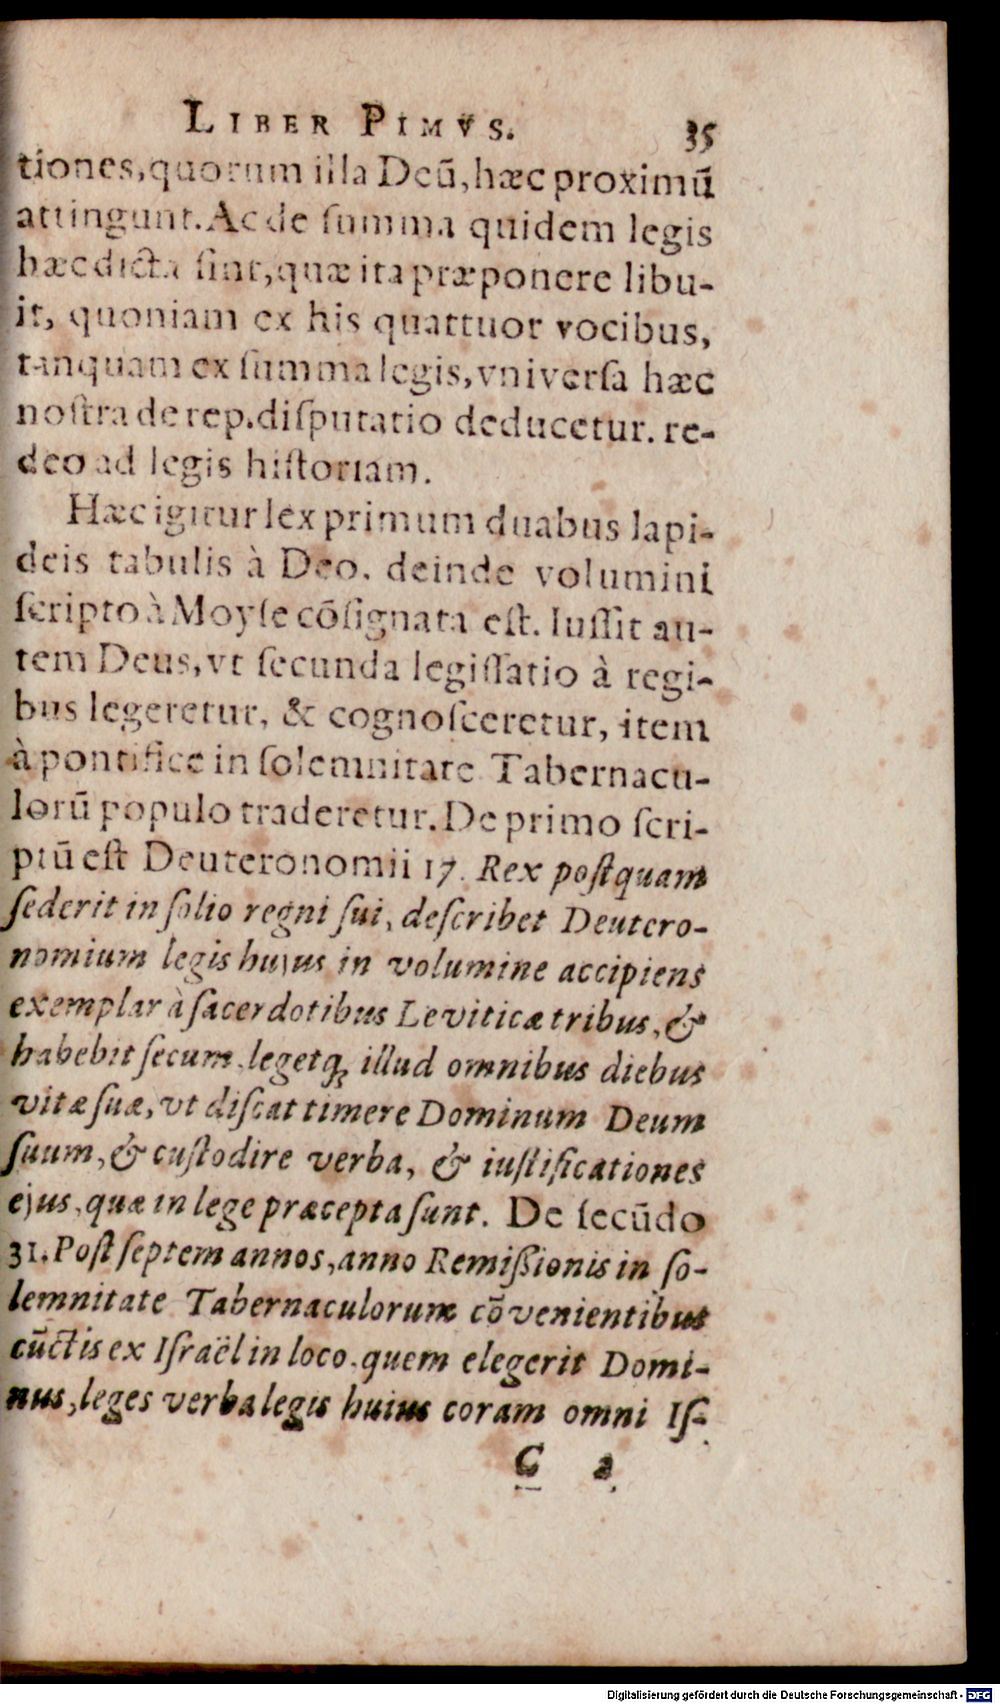 LIBER PIMVS. 35
tiones, quorum illa Deū, hæc proximū
attingunt. Ac de ſumma quidem legis
hæc dicta ſint, quæ ita præponere libu-
it, quoniam ex his quattuor vocibus,
tanquam ex ſumma legis, vniverſa hæc
noſtra de rep. diſputatio deducetur. re-
deo ad legis hiſtoriam.
Hæc igitur lex primum duabus lapi-
deis tabulis à Deo. deinde volumini
ſcripto à Moyſe cōſignata eſt. Iuſſit au-
tem Deus, vt ſecunda legiſlatio à regi-
bus legeretur, & cognoſceretur, item
à pontifice in ſolemnitate Tabernacu-
lorū populo traderetur. De primo ſcri-
ptū eſt Deuteronomii 17. Rex poſtquam
ſederit in ſolio regni ſui, deſcribet Deutero-
nomium legis hujus in volumine accipiens
exemplar à ſacerdotibus Leviticæ tribus, &
habebit ſecum, legetq; illud omnibus diebus
vitæ ſuæ, vt diſcat timere Dominum Deum
ſuum, & cuſtodire verba, & iuſtificationes
ejus, quæ in lege præcepta ſunt. De ſecūdo
31. Poſt ſeptem annos, anno Remiſſionis in ſo-
lemnitate Tabernaculorum cōvenientibus
cūctis ex Iſraël in loco, quem elegerit Domi-
nus, leges verba legis huius coram omni Iſ-
C 2
Digitalisierung gefördert durch die Deutsche Forschungsgemeinschaft - DFG